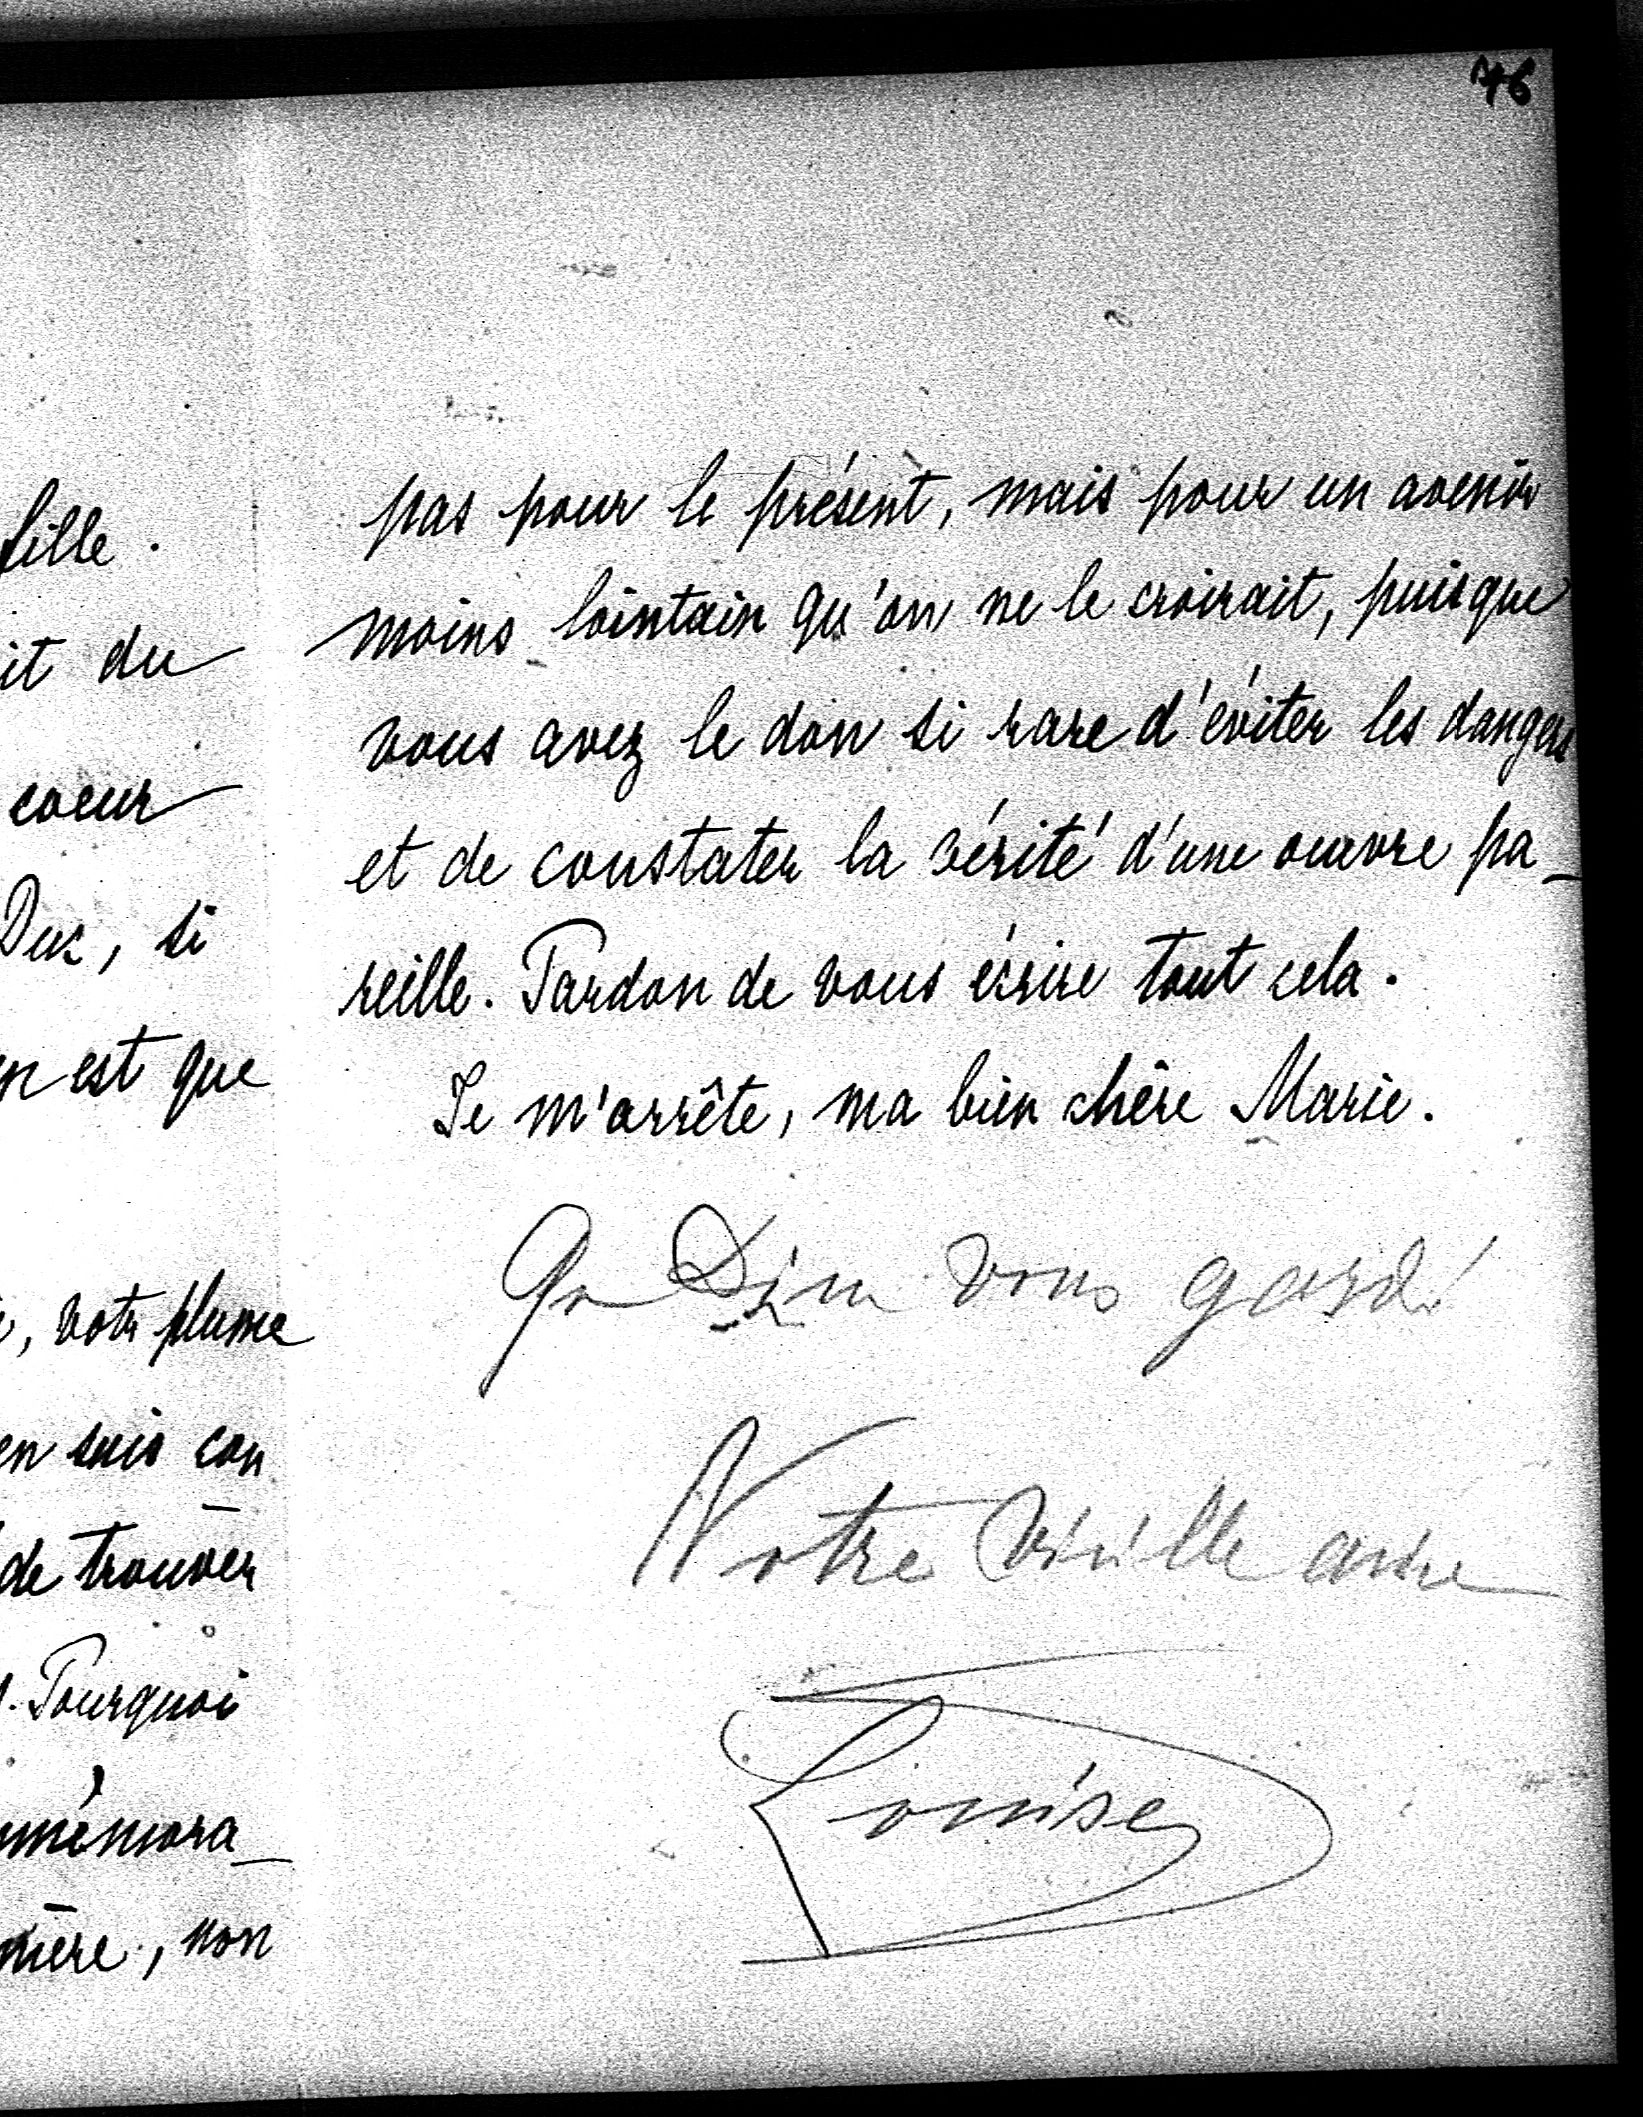 fille.
it du
coeur
Duc, si
n est que
, votre plume
en suis con
de trouver
. Pourquoi
mémora_
mère, non
46
pas pour le présent, mais pour un avenir
moins lointain qu'on ne le croirait, puisque
vous avez le don si rare d'éviter les dangers
et de constater la vérité d'une œuvre pa_
reille. Pardon de vous écrire tout cela.
Je m'arrête, ma bien chère Marie.
Que Dieu vous garde!
Votre vieille amie
Louise